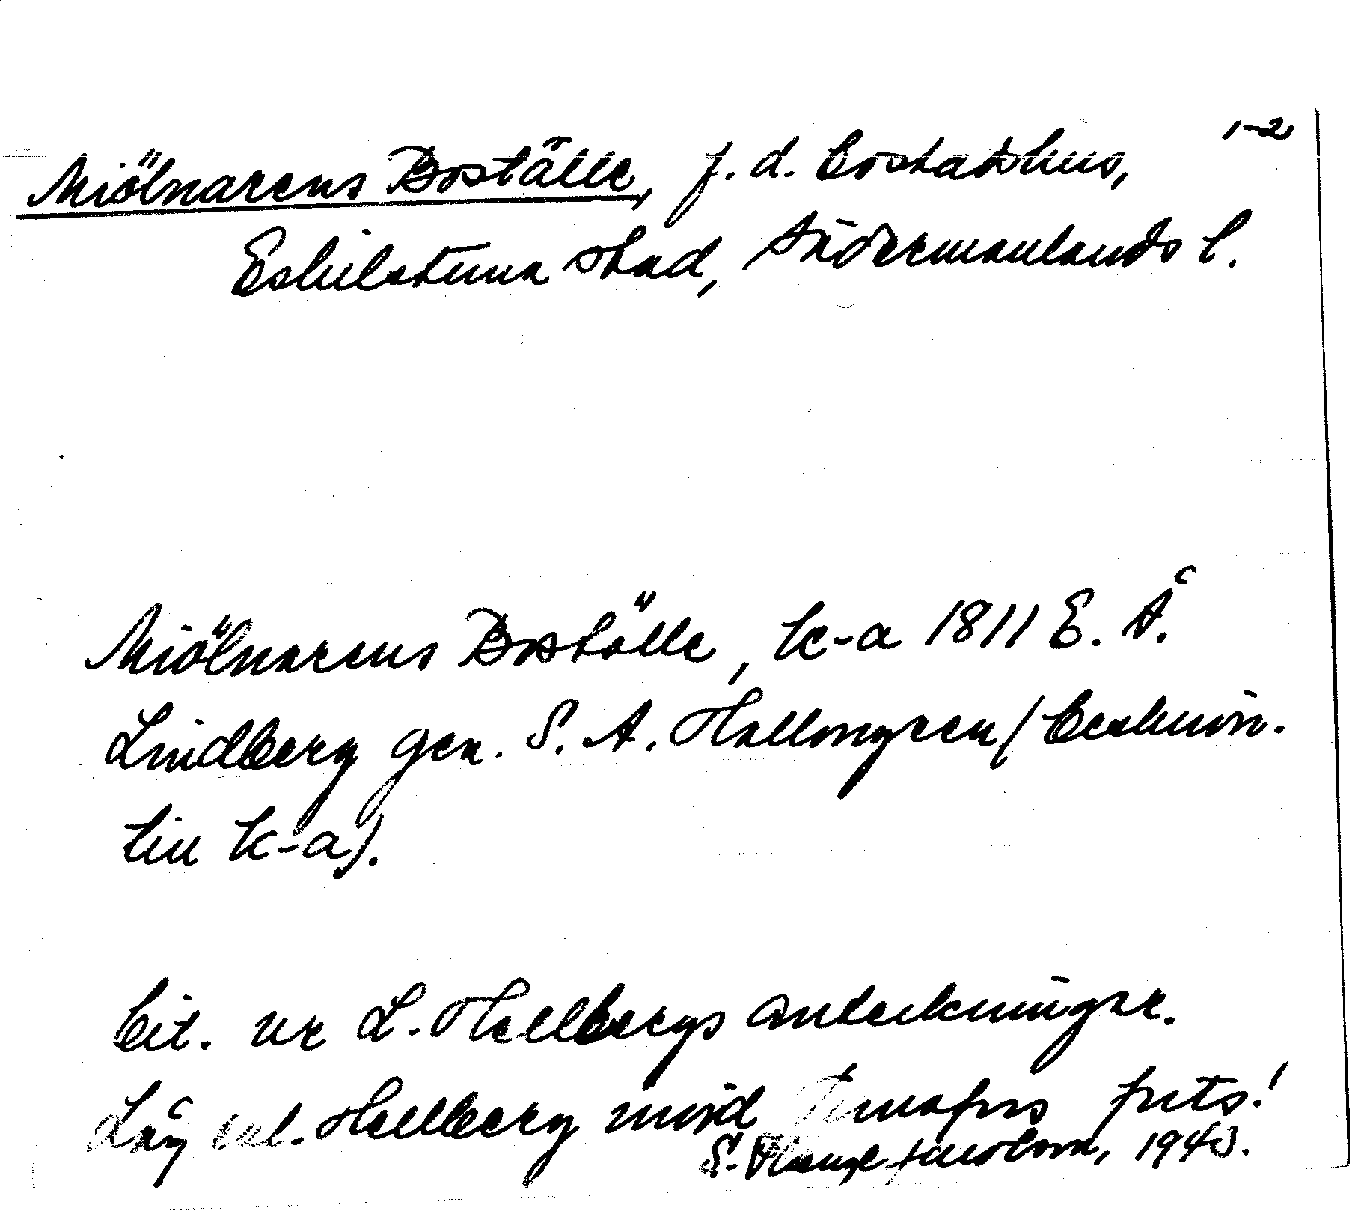 1-2
Miölnarens Boställe, f. d. bostadshus,
Eskilstuna stad, Södermanlands l.
Miölnarens Boställe, k-a 1811 E. Å.
Lindberg gen. S. A. Hallongren (beskrivn.
till k-a).
Cit. ur L. Hellbergs anteckningar.
Låg enl. Hellberg invid Tunafors puts.!
S. 1943.